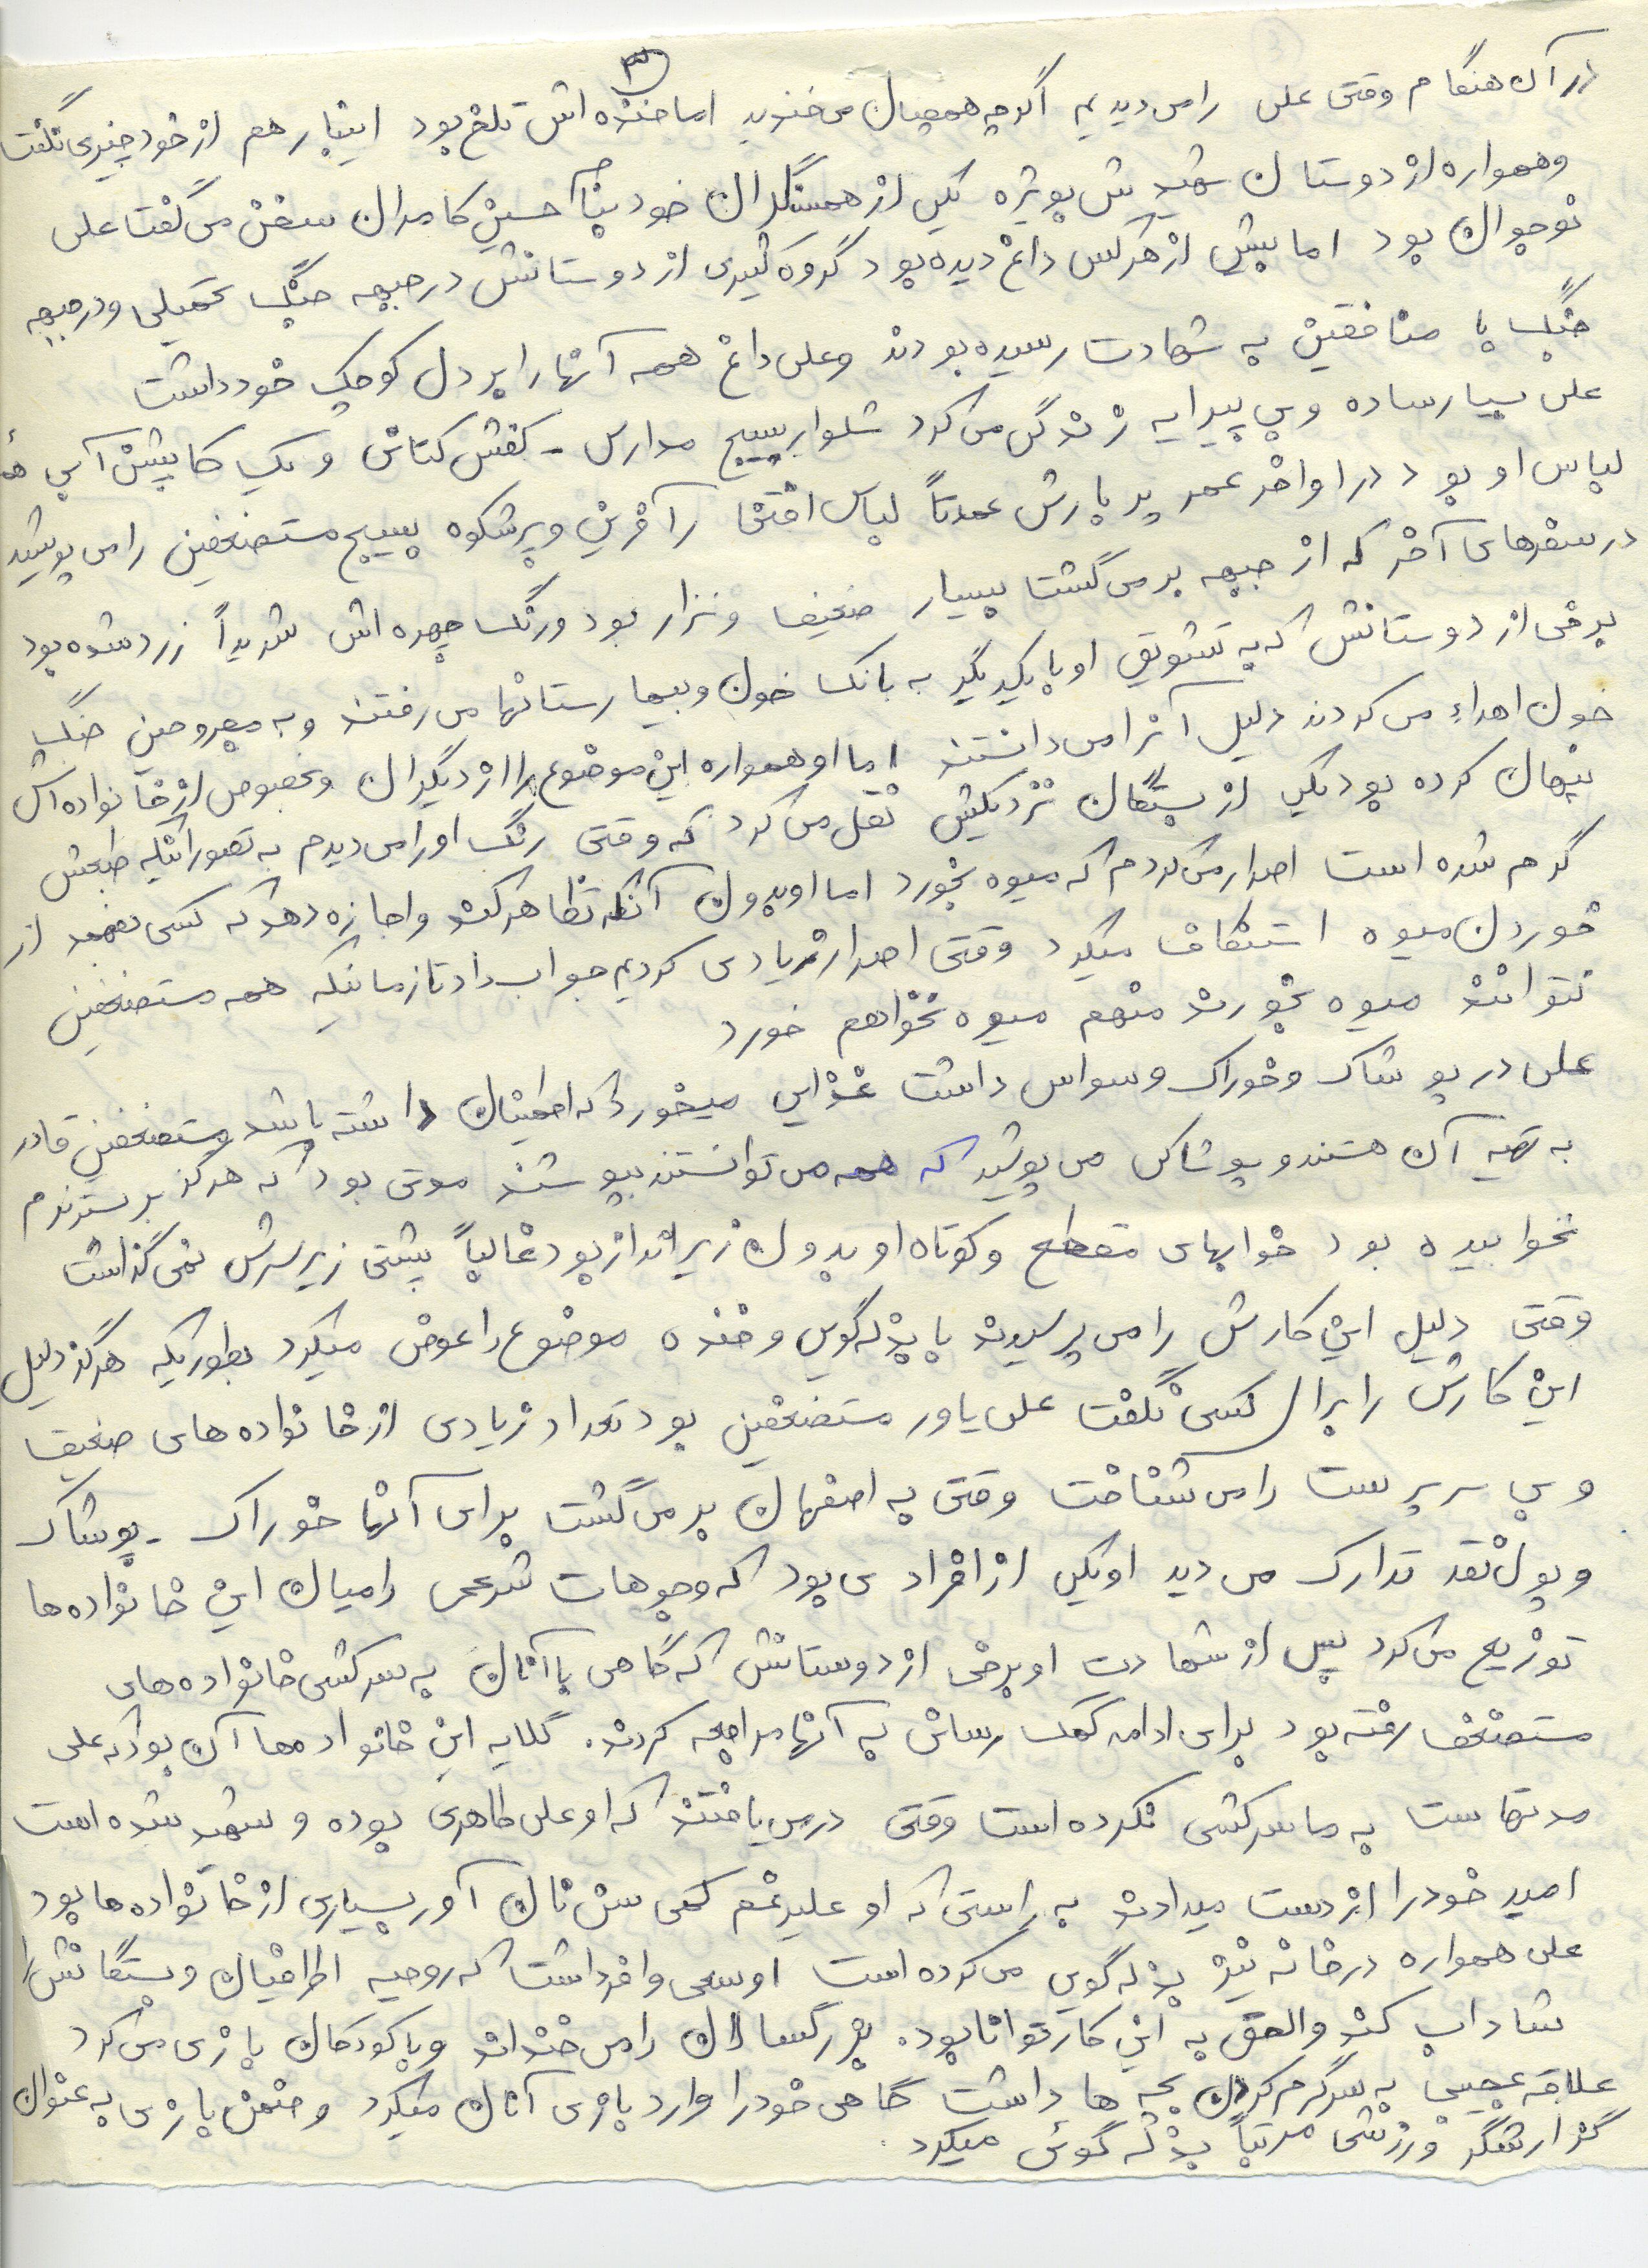 ۳
در آن هنگام وقتی علی را می دیدیم اگرچه همچنان می خندید اما خنده اش تلخ بود اینبار هم از خود چیزی نگفت
و همواره از دوستان شهیدش بویژه یکی از همسنگران خود بنام حسین کامران سخن می گفت علی
نوجوان بود اما بیش از هرکس داغ دیده بود گروه کثیری از دوستانش در جبهه جنگ تحمیلی و در جبهه
جنگ با منافقین به شهادت رسیده بودند و علی داغ همه آنها را بر دل کوچک خود داشت
علی بسیار ساده و بی پیرایه زندگی می کرد شلوار بسیج مدارس - کفش کتانی و یک کاپشن آبی
لباس او بود در اواخر عمر پر بارش عمدتاً لباس افتخار آفرین و پرشکوه بسیج مستضعفین را می پوشید
در سفرهای آخر که از جبهه بر می گشت بسیار ضعیف و نزار بود و رنگ چهره اش شدیداً زرد شده بود
برخی از دوستانش که به تشویق او با یکدیگر به بانک خون و بیمارستانها می رفتند و به مجروحین جنگ
خون اهداء می کردند دلیل آنرا می دانستند اما او همواره این موضوع را از دیگران و بخصوص از خانواده اش
پنهان کرده بود یکی از بستگان نزدیکش نقل می کرد که وقتی رنگ او را می دیدم به تصور اینکه طبعش
گرم شده است اصرار می کردم که میوه بخورد اما او بدون آنکه تظاهر کند و اجازه دهد که کسی بفهمد از
خوردن میوه استنکاف میکرد وقتی اصرار زیادی کردیم جواب داد تا زمانیکه همه مستضعفین
نتوانند میوه بخورند منهم میوه نخواهم خورد
علی در پوشاک و خوراک وسواس داشت غذایی میخورد که اطمینان داشته باشد مستضعفین قادر
به تهیه آن هستند و پوشاکی می پوشید که همه می توانستند بپوشند مدتی بود که هرگز بر بستر نرم
نخوابیده بود خوابهای متقطع و کوتاه او بدون زیرانداز بود غالباً پشتی زیر سرش نمی گذاشت
وقتی دلیل این کارش را می پرسیدند با بذله گویی و خنده موضوع را عوض میکرد بطوریکه هرگز دلیل
این کارش را برای کسی نگفت علی یاور مستضعفین بود تعداد زیادی از خانواده های ضعیف
و بی سرپرست را می شناخت وقتی به اصفهان بر می گشت برای آنها خوراک - پوشاک
و پول نقد تدارک می دید او یکی از افرادی بود که وجوهات شرعی را میان این خانواده ها
توزیع می کرد پس از شهادت او برخی از دوستانش که گاهی با آنان به سرکشی خانواده های
مستضعف رفته بود برای ادامه کمک رسانی به آنها مراجعه کردند. گلایه این خانواده ها آن بود که علی
مدتهاست به ما سرکشی نکرده است وقتی در می یافتند که او علی طاهری بوده و شهید شده است
امید خود را از دست میدادند به راستی که او علیرغم کمی سن نان آور بسیاری از خانواده ها بود
علی همواره در خانه نیز بذله گویی می کرده است او سعی وافر داشت که روحیه اطرافیان و بستگانش را
شاداب کند و الحق به این کار توانا بود. بزرگسالان را می خنداند و با کودکان بازی می کرد
علاقه عجیبی به سرگرم کردن بچه ها داشت گاهی خود را وارد بازی آنان میکرد و ضمن بازی به عنوان
گزارشگر ورزشی مرتباً بذله گوئی میکرد.